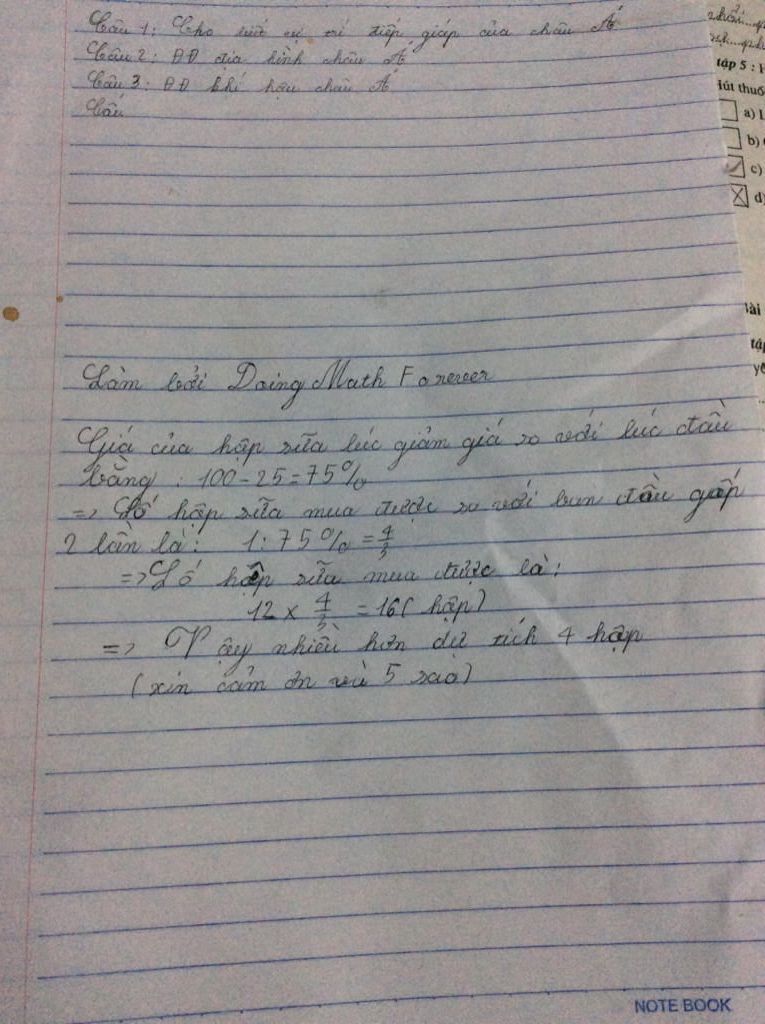 Câu 1: Cho biết vị trí tiếp giáp của châu Á
Câu 2: ĐĐ địa hình châu Á
Câu 3: ĐĐ khí hậu châu Á
Câu
Làm bởi Doing Math Forever
Giá của hộp sữa lúc giảm giá so với lúc đầu
bằng : 100-25=75%
=> Số hộp sữa mua được so với ban đầu gấp
2 lần là: 1:75%=4/3
=> Số hộp sữa mua được là:
12 x 4/3 =16( hộp)
=> Vậy nhiều hơn dự tích 4 hộp
(xin cảm ơn và 5 sao)
tập 5 : H
Hút thuố
a)
b)
c)
d)
NOTE BOOK